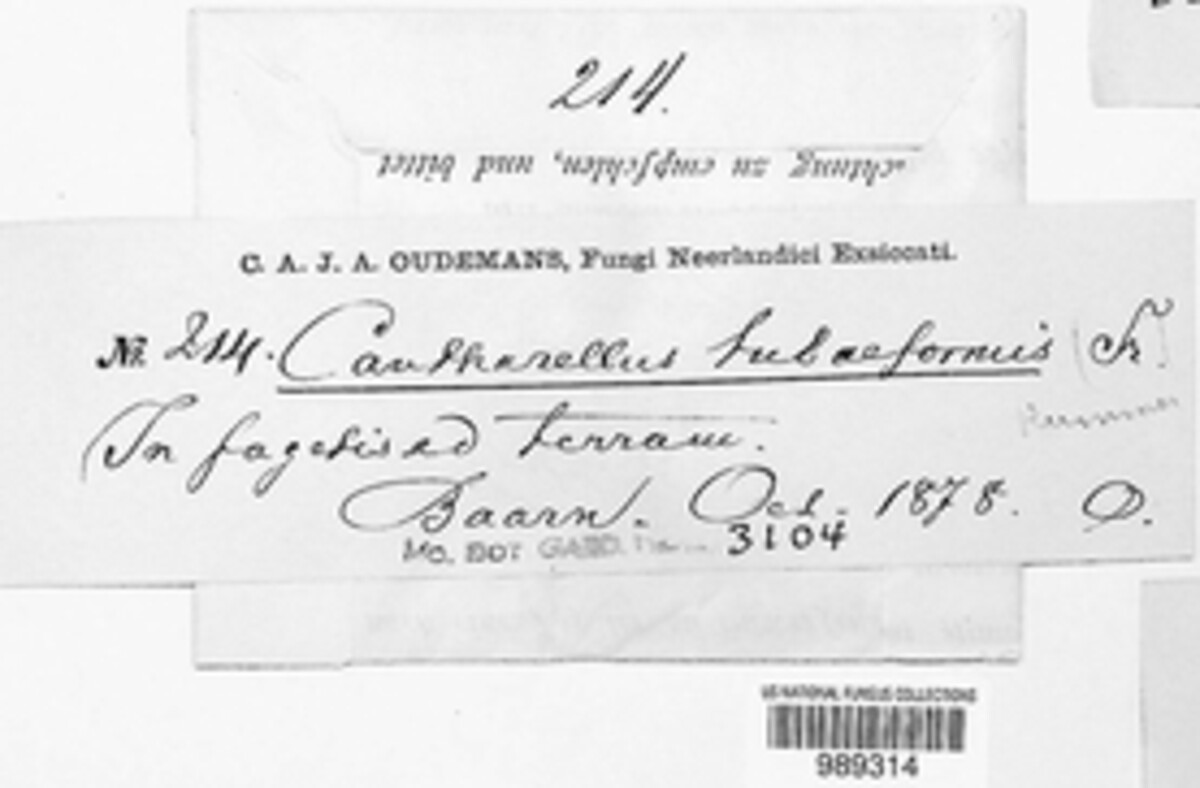 214.
chtung zu empfehlen, und bittet
C. A. J. A. OUDEMANS, Fungi Neerlandici Exsiccati.
No. 214. Cantharellus tubaeformis (Fr.)
In fagetis ad terram.
Baarn. Oct. 1878. O.
MO. BOT. GARD. 3104
US NATIONAL FUNGUS COLLECTIONS
989314